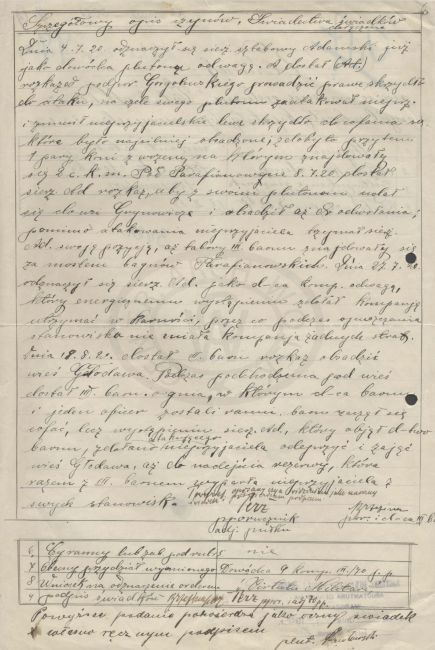 Szczegółowy opis czynów, Świadectwa świadków
Dnia 4.7.20. odznaczył się sierż. sztabowy Adamski już
jako dowódca plutonu odwagą. A dostał (Ad.)
rozkaz od podpor. prowadzić prawe skrzydło
do ataku, na czele swego plutonu zaatakował nieprz.
i zmusił nieprzyjacielskie lewe skrzydło do cofania się
które było najsilniej obsadzone, zdobył przytem
1 parę koni z wozem, na którym znajdowały
się 2 c.k.m. Pod Parafianowem 8.7.20. dostał
sierż. Ad. rozkaz, aby z swoim plutonem udał
się do wsi i obsadził aż do odwołania;
pomimo atakowania nieprzyjaciela trzymał sierż.
Ad. swoją pozycję, aż tabory III baonu znajdowały się
za mostem Parafianowskich. Dnia 27.7.20.
odznaczył się sierż. Ad. jako d-ca komp. odwagą,
który energicznem wystąpieniem zdołał kompanję
utrzymać w karności, przez co podczas opuszczenia
stanowiska nie miała kompanja żadnych strat.
Dnia 18.8.20. dostał III. baon rozkaz obsadzić
wieś Głodawa. Podczas podchodzenia pod wieś
dostał III. baon ognia, w którym d-ca baonu
i jeden oficer zostali ranni. Baon zaczął się
cofać, lecz wystąpieniem sierż. Ad., który objął d-two
baonu, zdołano atakującego nieprzyjaciela odeprzeć i zająć
wieś Głodawa, aż do nadejścia rezerwy, która
razem z III. baonem wyparła nieprzyjaciela z
swych stanowisk.
pporucznik
adj. pułku
6. Cyranny lub żak podwulis nie
7. Obecny przydział wymienionego Dowódca 9 komp. III/70 p.p.
8. Wniosek na odznaczenie orderem Virtuti Militari
9. podpis świadków
Powyższe podanie potwierdza jako oczny świadek
własnoręcznym podpisem